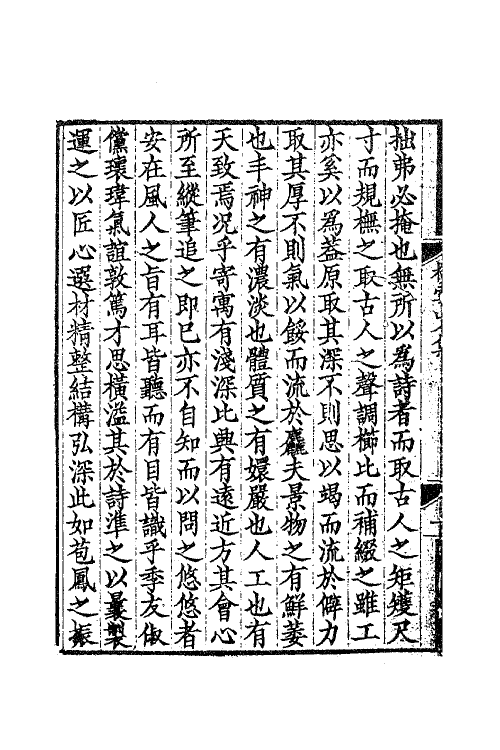 拙弗必掩也無所以為詩者而取古人之矩矱尺
寸而規橅之取古人之聲調櫛比而補綴之雖工
亦奚以為葢原取其深不則思以竭而流於僻力
取其厚不則氣以餒而流於麤夫景物之有鮮萎
也丰神之有濃淡也體質之有嬛嚴也人工也有
天致焉况乎寄寓有淺深此興有遠近方其會心
所至縱筆追之即已亦不自知而以問之悠悠者
安在風人之旨有耳皆聽而有目皆識乎季友俶
儻瓌瑋氣誼敦篤才思橫溢其於詩準之以曩製
運之以匠心選材精整結構弘深此如苞鳳之振